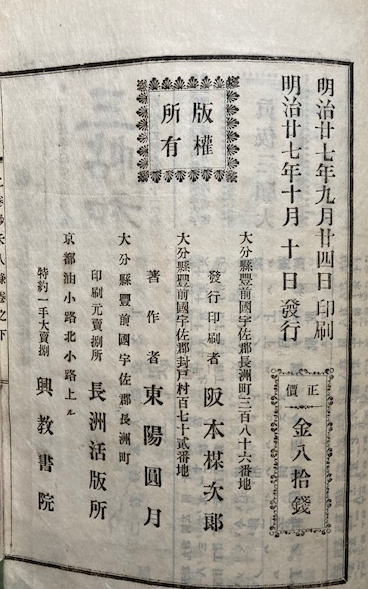 明治廿七年九月廿四日印刷
明治廿七年十月十日發行
正價
金八拾錢
版權
所有
大分縣豐前國宇佐郡長洲町三百八十六番地
發行印刷者 阪本楳次郎
大分縣豐前國宇佐郡封戸村百七十貳番地
著作者 東陽圓月
大分縣豐前國宇佐郡長洲町
印刷元賣捌所 長洲活版所
京都油小路北小路上ル
特約一手大賣捌 興教書院